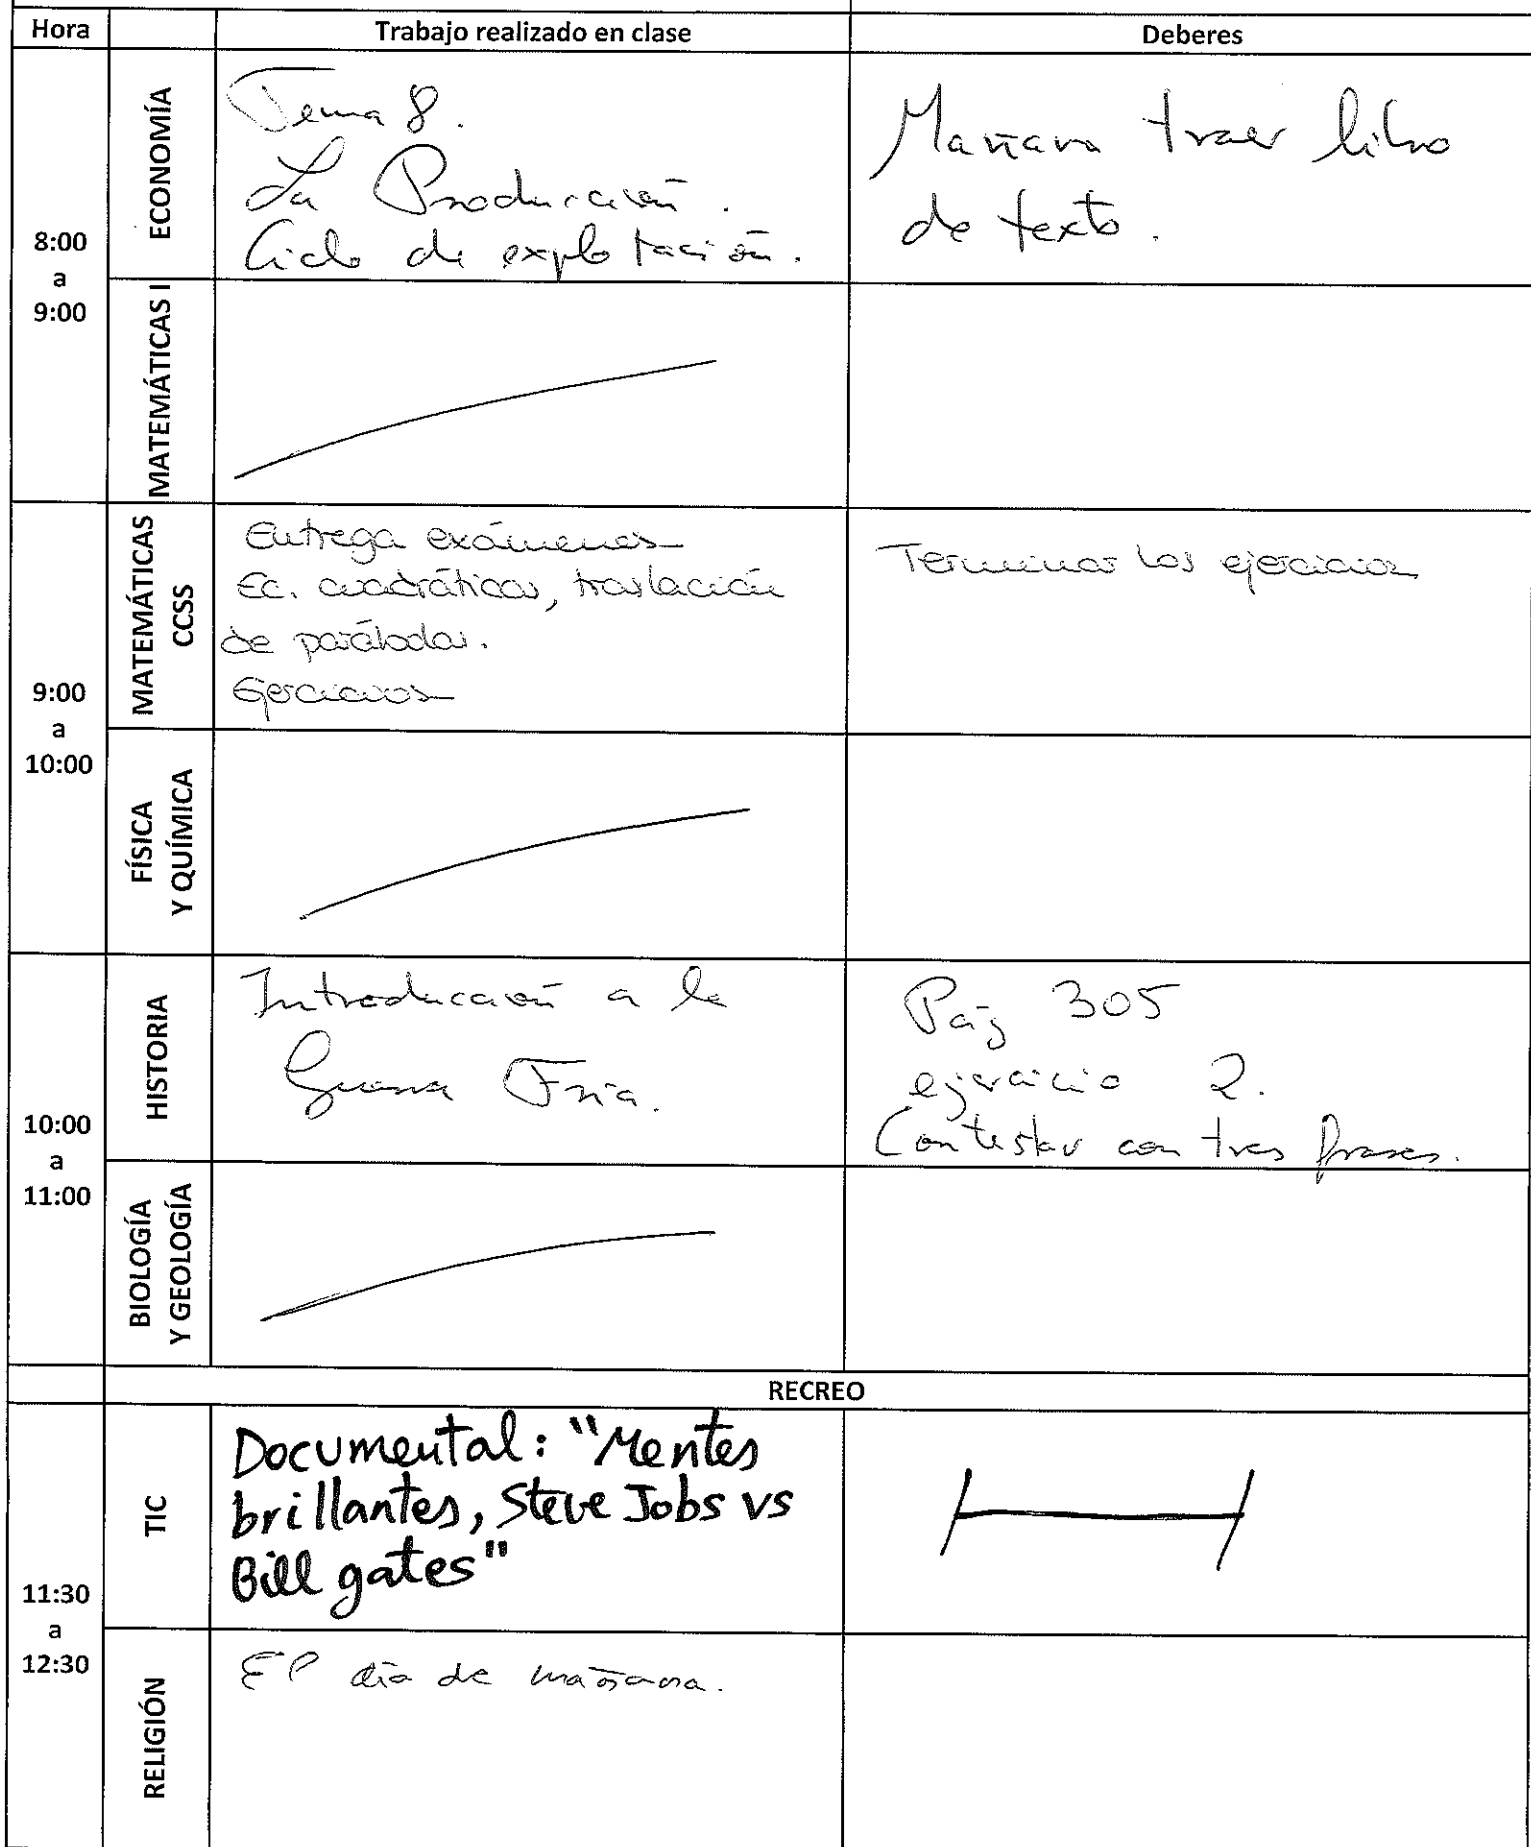 Hora Trabajo realizado en clase Deberes
8:00
a
9:00
ECONOMÍA
Tema 8.
La Producción.
Ciclo de explotación.
Mañana traer libro
de texto.
MATEMÁTICAS I
9:00
a
10:00
MATEMÁTICAS
CCSS
Entrega exámenes
Ec. cuadráticas, traslación
de parábolas.
Ejercicios
Terminar los ejercicios
FÍSICA
Y QUÍMICA
10:00
a
11:00
HISTORIA
Introducción a la
Guerra Fría.
Pág 305
ejercicio 2.
Contestar con tres frases.
BIOLOGÍA
Y GEOLOGÍA
RECREO
11:30
a
12:30
TIC
Documental: "Mentes
brillantes, Steve Jobs vs
Bill gates"
RELIGIÓN
día de mañana.